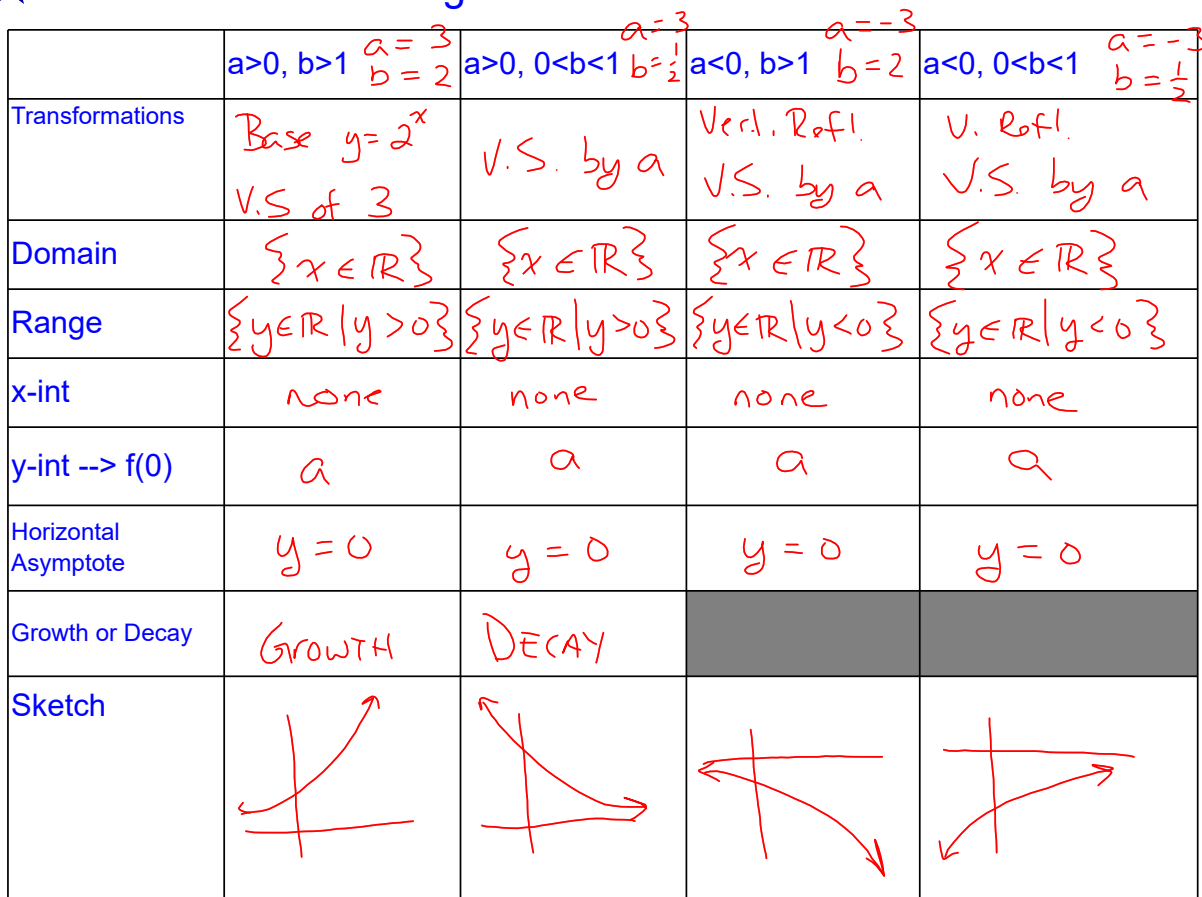 a>0, b>1 a = 3 b = 2
a>0, 0<b<1 a = 3 b = 1/2
a<0, b>1 a = -3 b = 2
a<0, 0<b<1 a = -3 b = 1/2
Transformations
Base y = 2^x
V.S of 3
V.S. by a
Vert. Refl.
V.S. by a
V. Refl.
V.S. by a
Domain {x ∈ ℝ} {x ∈ ℝ} {x ∈ ℝ} {x ∈ ℝ}
Range {y∈ℝ|y>0} {y∈ℝ|y>0} {y∈ℝ|y<0} {y∈ℝ|y<0}
x-int none none none none
y-int --> f(0) a a a a
Horizontal
Asymptote
y = 0 y = 0 y = 0 y = 0
Growth or Decay GROWTH DECAY
Sketch